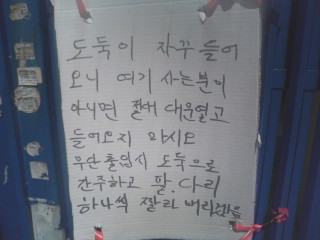 도둑이 자꾸 들어
오니 여기 사는분이
아니면 절대 대문열고
들어오지 마시오
무단출입시 도둑으로
간주하고 팔. 다리
하나씩 짤라 버리겠음